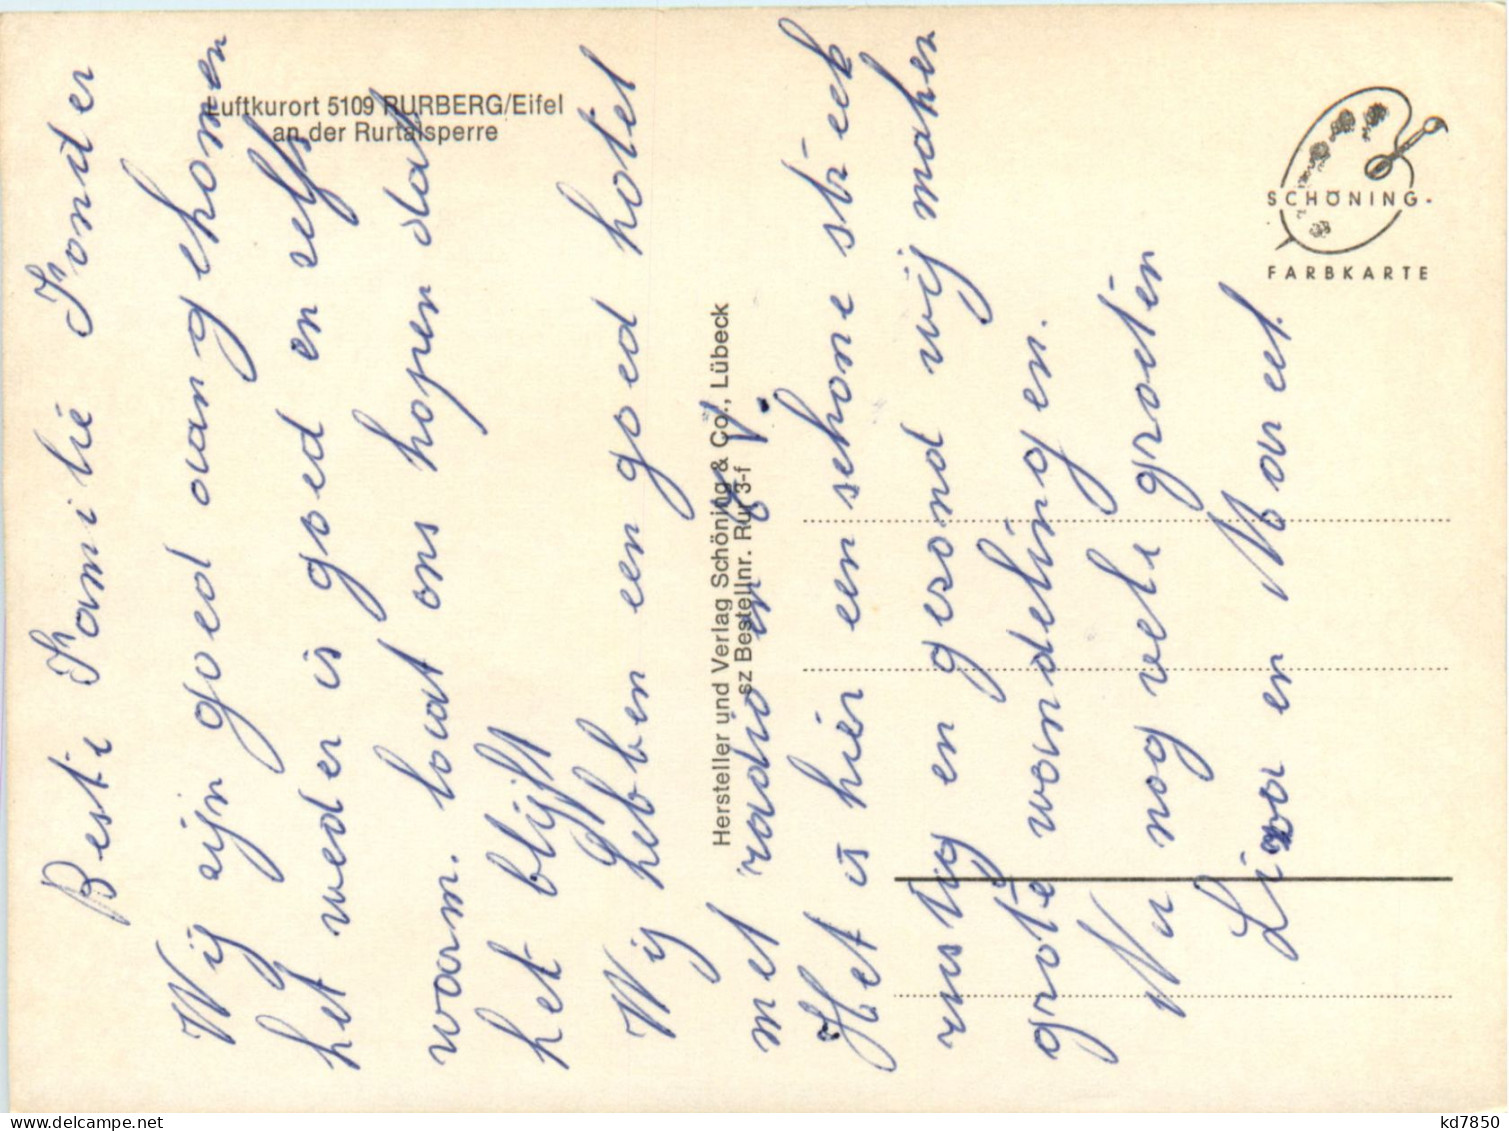 Luftkurort 5109 RURBERG/Eifel
an der Rurtalsperre
SCHÖNING-
FARBKARTE
Hersteller und Verlag Schöning & Co., Lübeck
sz Bestellnr. Rur 3-f
Beste Familie Fonder
Wij zijn goed aangekomen
het weder is goed en zelfs
waam. laat ons hopen dat
het blijft
Wij hebben een goed hotel
met radio en T.V.
Het is hier een schone streek
rustig en gezond wij maken
grote wandelingen.
Nu nog vele groeten
en Marcel.
delcampe.net
kd7850